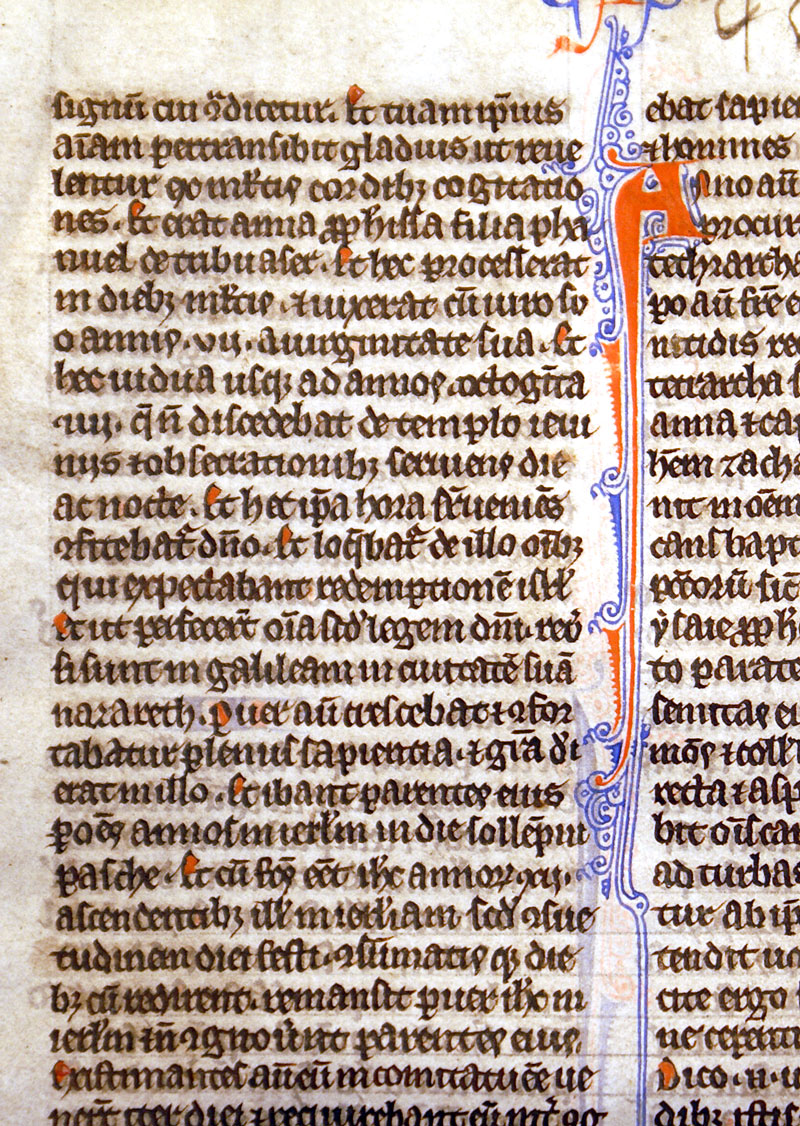 signū cui ꝯ̄dicetur. Et tuam ip̄ius
aīam ꝑtransibit gladius ut reue
lentur ex multis cordibꝫ cogitatio
nes. Et erat anna ꝓph'issa filia pha
nuel de tribu aser. Et hec ꝓcesserat
in diebꝫ ml'tis ⁊ uixerat cū uiro su
o annis .vii. a uirginitate sua. Et
hec uidua usqꝫ ad annos octogīta
.iiij. q̄ n̄ discedebat de templo ieiu
niis ⁊ obsecrationibꝫ seruiens die
ac nocte. Et hec ip̄a hora suꝑueniēs
ꝯfitebat᷑ dn̄o. Et loq̄bat᷑ de illo oībꝫ
qui expectabant redemptionē isrl'
Et ut ꝑfecer̄t oīa scd' legem dn̄i reu᷑
si sunt in galileam in ciuitatē suā
nazareth. Puer aū crescebat ⁊ ꝯfor
tabatur plenus sapientia ⁊ gr̄a d'i
erat in illo. Et ibant parentes eius
ꝑ oēs annos in ierl'm in die sollēpni
pasche. Et cū fc̄s eēt ih'c annoꝝ .xij.
ascendentibꝫ ill' in ierl'iam scd' ꝯsue
tudinem diei festi ꝯsūmatis qꝫ die
bꝫ cū redirent remansit puer ih'c in
ierl'm ⁊ n̄ ꝯgnouer̄t parentes eius
Existimantes aū eū in comitatu eē ue
ner̄t iter diei ⁊ requirebant eū int᷑ ꝯg
ebat sapie
⁊ homines
Anno aū
procur
techrarcha
po aū fr̄e e
nitidis re
tetrarcha
anna ⁊ ca
hēm zacha
nit in oēm
cans bapt
pctōrū sic
ysaie ꝓph'
to parate
semitas ei
mōs ⁊ coll'
recta ⁊ asp
bit oīs car
ad turbas
tur ab ip̄
tendit ue
cite ergo
ne ceperiti
Dico .n. u
dibꝫ istis